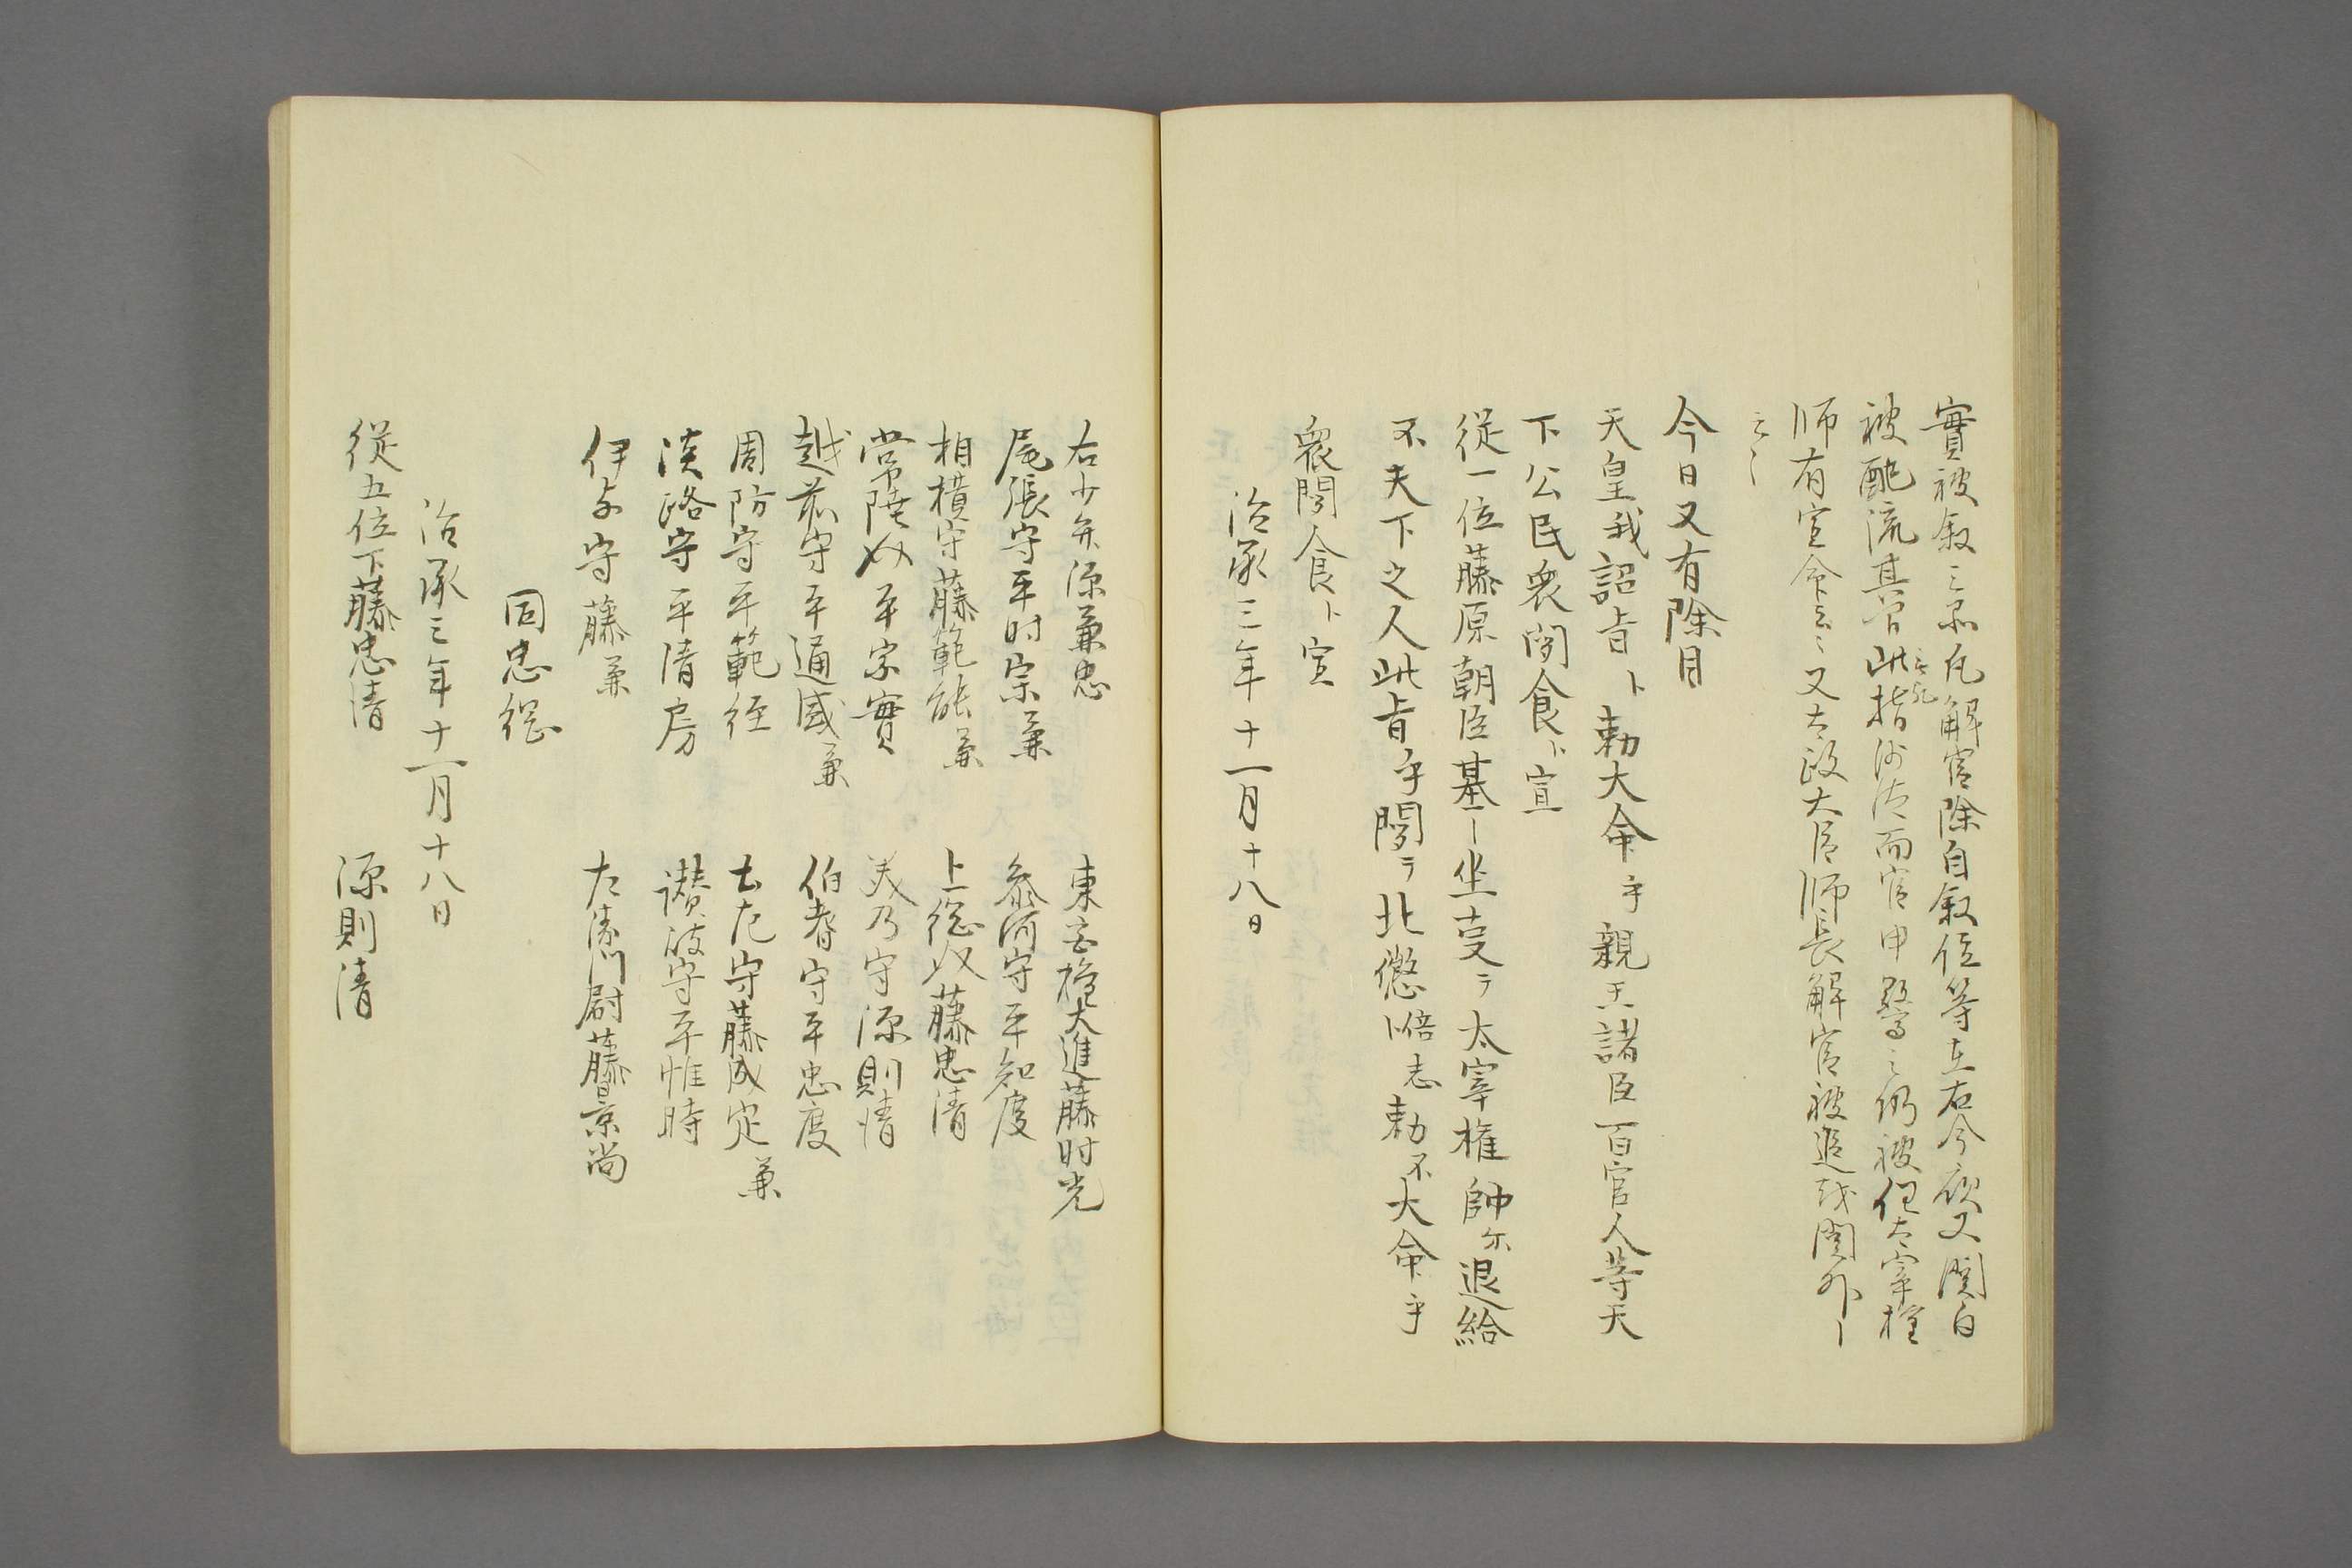 實被叙之處凡解官除目叙位等在右今夜又関白
被配流其官此指沙汰而官申驚之仍被但太宰権
師有宣命云々又太政大臣師長解官被追越関外
云々
今日又有除目
天皇我詔旨ト勅大命乎親王諸臣百官人等天
下公民衆聞食ト宣
従一位藤原朝臣基ー坐事ヲ太宰権帥尓退給
不夫下之人此旨乎聞ラ北懲ト倍志勅不大命乎
衆聞食ト宣
治承三年十一月十八日
右少弁源兼忠 東宮権大進藤时光
尾張守平时宗兼 参河守平知度
相模守藤範能兼 上総介藤忠清
常陸介平宗實 美乃守源則清
越前守平通盛兼 伯耆守平忠度
周防守平範経 土左守藤成定兼
淡路守平清房 讃岐守平惟時
伊与守藤兼 左衛門尉藤景尚
同忠綱
治承三年十一月十八日
従五位下藤忠清 源則清